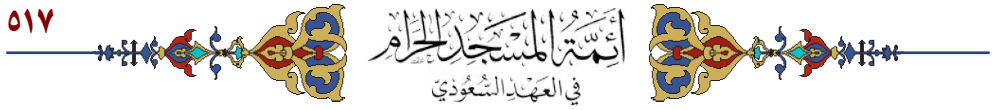 ٥١٧
أَئِمَّةُ المَسْجِدِ الحَرَامِ
فِي العَهْدِ السُّعُودِيّ